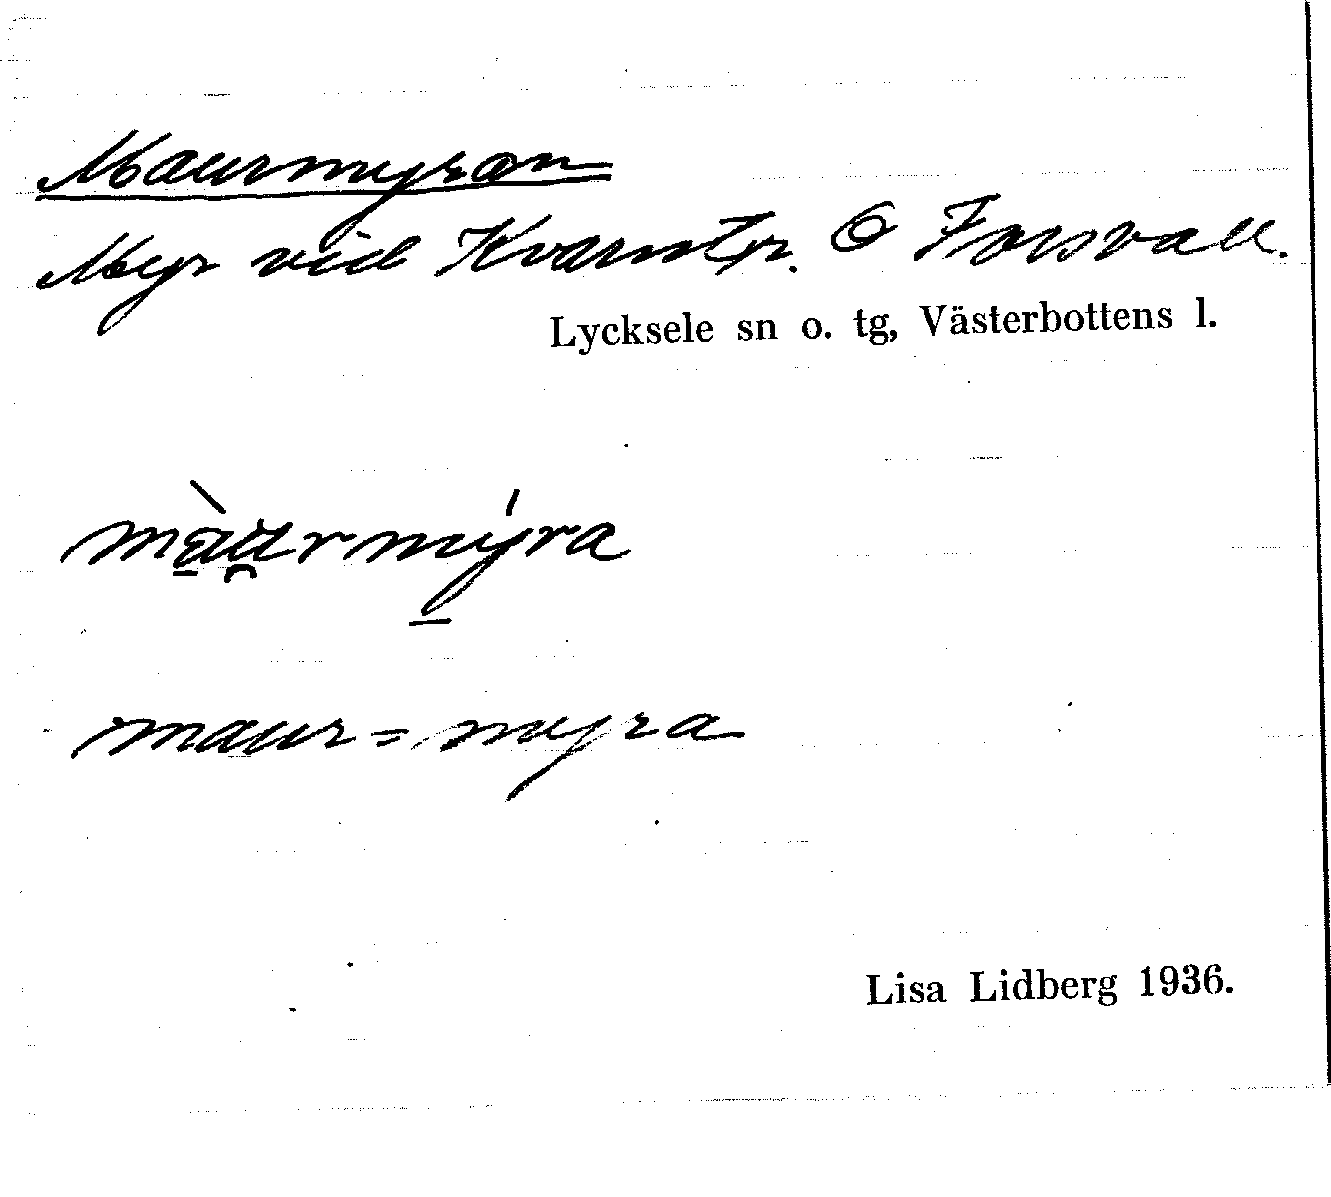 Maurmyran
Myr vid Kvarnstr. O Forsvall.
Lycksele sn o. tg, Västerbottens l.
màu̯rmýra
maur-myra
Lisa Lidberg 1936.